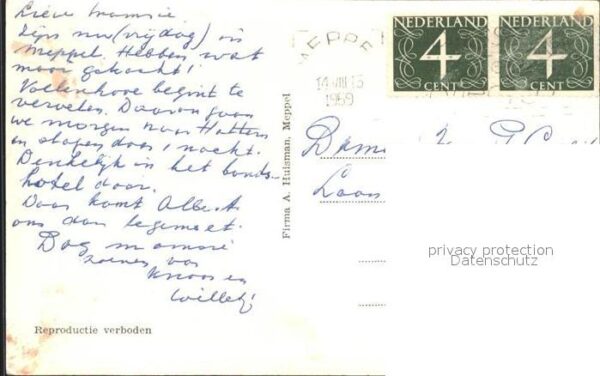 Lieve mamsie.
Zijn nu (vrijdag) in
Meppel. Hebben wat
moois gekocht!
Vollenhove begint te
vervelen. Daarom gaan
we morgen naar Hattem
en slapen daar 1 nacht.
Denkelijk in het bonds-
hotel daar.
Daar komt Albert
ons dan tegemoet.
Dag
zoenen van
en
Reproductie verboden
Firma A. Huisman, Meppel
MEPPEL
1969
NEDERLAND
4
CENT
NEDERLAND
4
CENT
privacy protection
Datenschutz